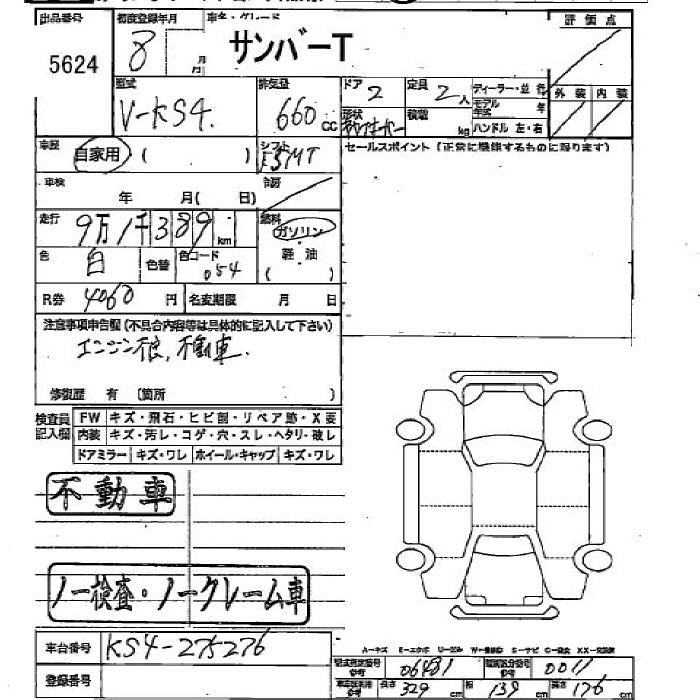 出品番号 初度登録年月 車名・グレード 評価点
5624 8 年 月 サンバーT
型式 排気量 ドア 定員 ディーラー・並行 外装 内装
V-KS4 660 cc 2 2人 モデル年式 年
形状 積載 kg ハンドル 左・右
車歴 自家用 ( ) シフト F5MT セールスポイント (正常に機能するものに限ります)
車検 年 月( 日) 冷房
走行 9万1千389km 燃料 ガソリン
色 白 色替 色コード 054 軽油
( )
R券 4060円 名変期限 月 日
注意事項申告欄 (不具合内容等は具体的に記入して下さい)
エンジン不良、不動車.
修復歴 有 〔箇所 〕
検査員記入欄 FW キズ・飛石・ヒビ割・リペア跡・X要
内装 キズ・汚レ・コゲ・穴・スレ・ヘタリ・破レ
ドアミラー キズ・ワレ ホイール・キャップ キズ・ワレ
不動車
ノー検査・ノークレーム車
車台番号 KS4-275276
登録番号
A-キズ E-エクボ U-凹み W-補修跡 S-サビ C-腐食 XX-交換済
型式指定番号 06481 類別区分番号 0011
長さ 329 cm 幅 139 cm 高さ 176 cm